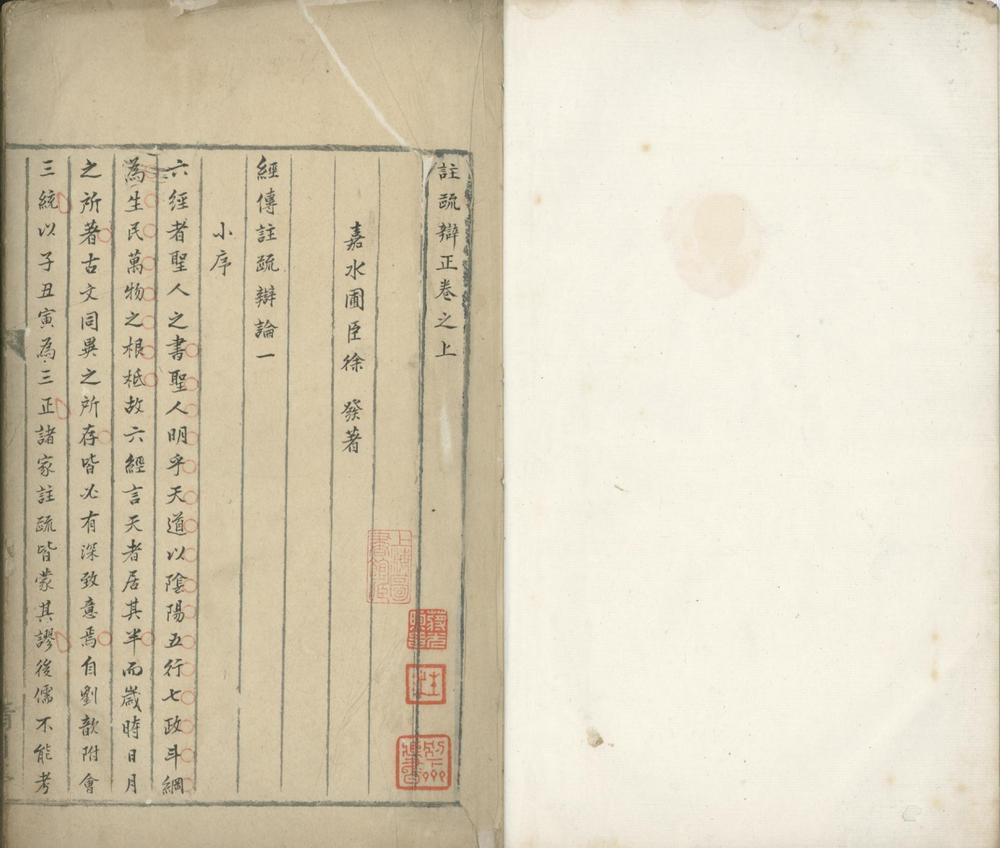 註疏辯正卷之上
嘉水圃臣徐發著
經傳註疏辯論一
小序
六經者聖人之書聖人明乎天道以陰陽五行七政斗綱
為生民萬物之根柢故六經言天者居其半而歲時日月
之所著古文同異之所存皆必有深致意焉自劉歆附會
三統以子丑寅為三正諸家註疏皆蒙其謬後儒不能考